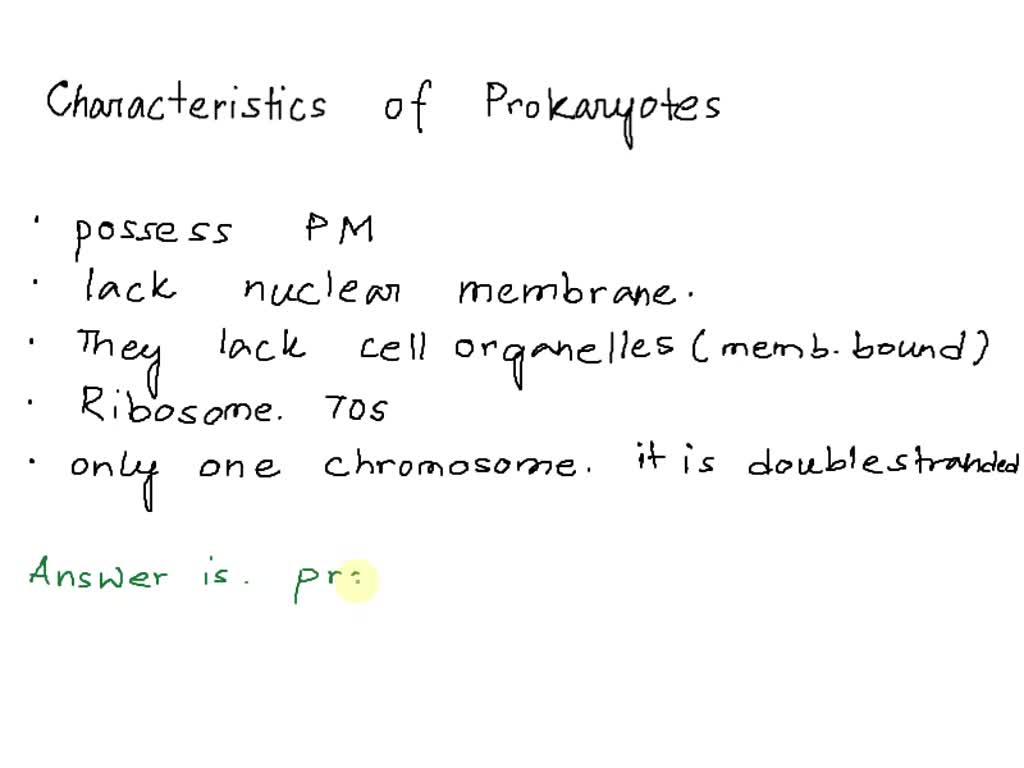 Characteristics of Prokaryotes
· possess PM
· lack nuclear membrane.
· They lack cell organelles (memb. bound)
· Ribosome. 70s
· only one chromosome. it is doublestranded
Answer is. pr